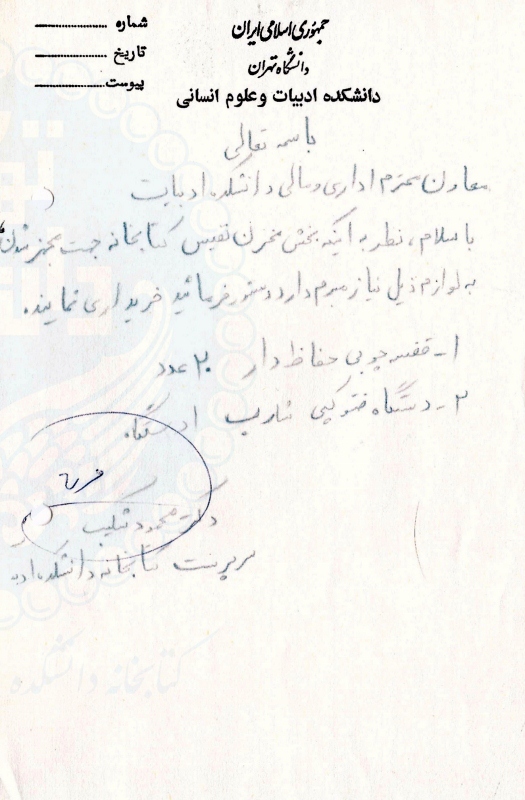 جمهوری اسلامی ایران
دانشگاه تهران
دانشکده ادبیات و علوم انسانی
شماره
تاریخ
پیوست
باسمه تعالی
معاون محترم اداری و مالی دانشکده ادبیات
با سلام، نظر به اینکه بخش مخزن نفیس کتابخانه جهت مجهز شدن
به لوازم ذیل نیاز مبرم دارد دستور فرمائید خریداری نمایند.
۱- قفسه چوبی حفاظ دار ۲۰ عدد
۲- دستگاه فتوکپی شارپ ۱ دستگاه
دکتر محمود شکیب
سرپرست کتابخانه دانشکده
کتابخانه دانشکده